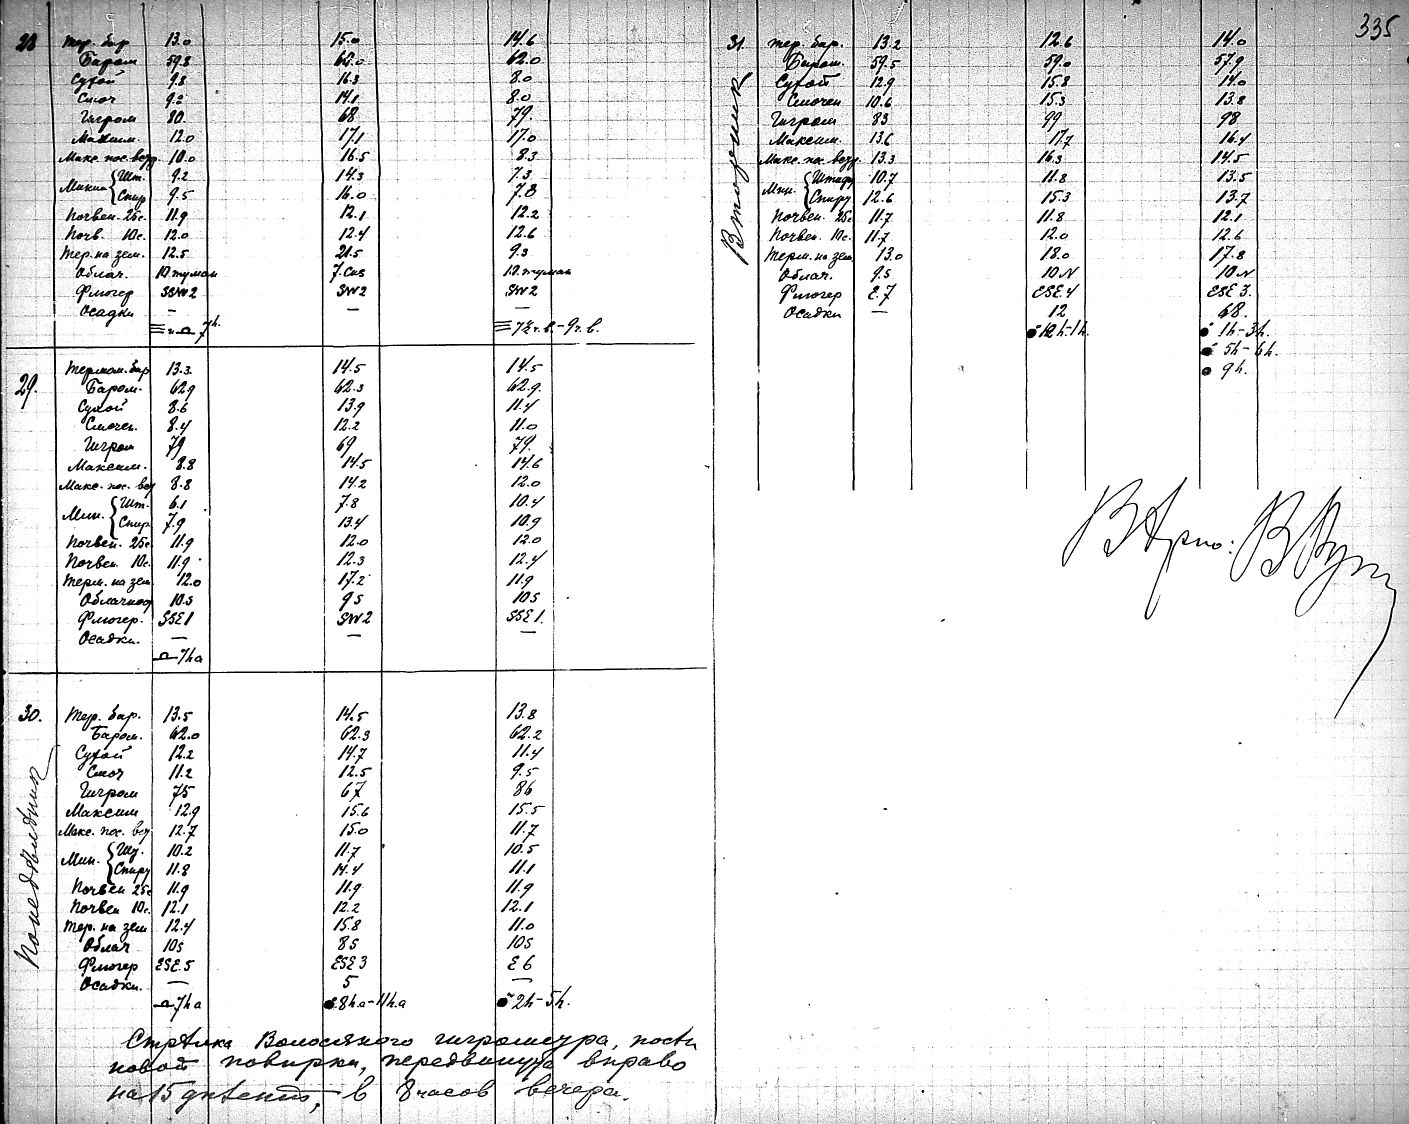 335
28 Тер. бар 13.0 15.0 14.6
Баром 59.8 62.0 62.0
Сухой 9.8 16.3 8.0
Смоч 9.2 14.1 8.0
Гигром 80. 68 79.
Максим. 12.0 17.1 17.0
Макс. пос. взр. 10.0 16.5 8.3
Миним { Шт. 9.2 14.3 7.3
Спир 9.5 16.0 7.8
Почвен. 25с. 11.9 12.1 12.2
Почв. 10с. 12.0 12.4 12.6
Тер. на зем. 12.5 21.5 9.3
Облач. 10 туман 7. Cus 10. туман
Флюгер SSW2 SW2 SW2
Осадки — — —
7h. 7½ ч. в. – 9 ч. в.
29. Термом. бар 13.3 14.5 14.5
Баром. 62.9 62.3 62.9
Сухой 8.6 13.9 11.4
Смочен. 8.4 12.2 11.0
Гигром 79 69 79.
Максим. 8.8 14.5 14.6
Макс. пос. вз 8.8 14.2 12.0
Мин. { Шт. 6.1 7.8 10.4
Спир. 7.9 13.4 10.9
Почвен. 25с 11.9 12.0 12.0
Почвен. 10с. 11.9 12.3 12.4
Терм. на зем. 12.0 17.2 11.9
Облачнос 10s 9s 10s
Флюгер. SSE1 SW2 SSE1.
Осадки. — — —
7ha
30. Тер. бар. 13.5 14.5 13.8
Понедѣльник
Баром. 62.0 62.3 62.2
Сухой 12.2 14.7 11.4
Смоч 11.2 12.5 9.5
Гигром 75 67 86
Максим 12.9 15.6 15.5
Макс. пос. взр 12.7 15.0 11.7
Мин. { Шт. 10.2 11.7 10.5
Спирт 11.8 14.4 11.1
Почвен 25с 11.9 11.9 11.9
Почвен 10с. 12.1 12.2 12.1
Тер. на зем 12.4 15.8 11.0
Облач 10s 8s 10s
Флюгер ESE.5 ESE3 E6
Осадки. — 5 —
7ha 8h.a – 11h.a 2h – 5h.
Стрѣлка Волосяного гигрометра, послѣ
новой повѣрки, передвинута вправо
на 15 дѣлений, в 8 часов вечера.
31. Тер. бар. 13.2 12.6 14.0
Вторник
Баром. 59.5 59.0 57.9
Сухой 12.9 15.8 14.0
Смочен 10.6 15.3 13.8
Гигром 83 99 98
Максим. 13.6 17.7 16.4
Макс. пос. взр. 13.3 16.3 14.5
Мин. { Штифт 10.7 11.8 13.5
Спирт 12.6 15.3 13.7
Почвен. 25с 11.7 11.8 12.1
Почвен. 10с. 11.7 12.0 12.6
Терм. на зем 13.0 18.0 17.8
Облач. 9.s 10 N 10 N
Флюгер E.7 ESE.4 ESE 3.
Осадки — 12 68.
12h – 1h. 1h – 3h.
5h – 6h.
9h.